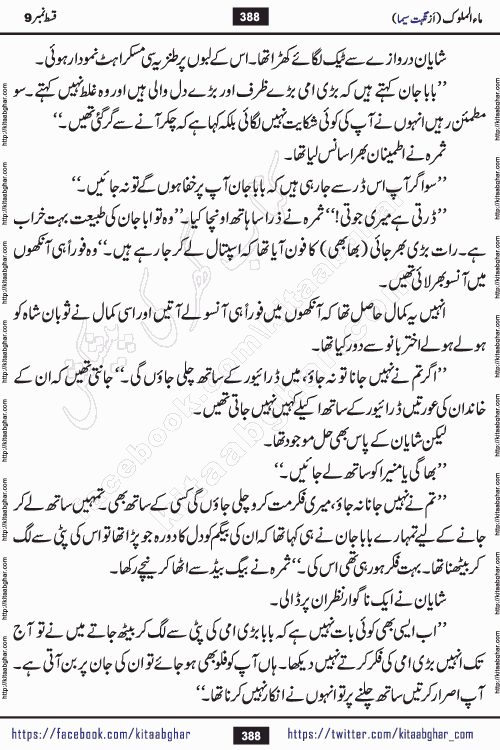 ماء الملوک (از نگہت سیما) 388 قسط نمبر 9
شایان دروازے سے ٹیک لگائے کھڑا تھا۔ اس کے لبوں پر طنزیہ سی مسکراہٹ نمودار ہوئی۔
’’بابا جان کہتے ہیں کہ بڑی امی بڑے ظرف اور بڑے دل والی ہیں اور وہ غلط نہیں کہتے۔ سو
مطمئن رہیں انہوں نے آپ کی کوئی شکایت نہیں لگائی بلکہ کہا ہے کہ چکر آنے سے گر گئی تھیں۔‘‘
ثمرہ نے اطمینان بھرا سانس لیا تھا۔
’’سو اگر آپ اس ڈر سے جا رہی ہیں کہ بابا جان آپ پر خفا ہوں گے تو نہ جائیں۔‘‘
’’ڈرتی ہے میری جوتی!‘‘ ثمرہ نے ذرا سا ہاتھ اونچا کیا۔ ’’وہ تو ابا جان کی طبیعت بہت خراب
ہے۔ رات بڑی بھرجائی (بھابھی) کا فون آیا تھا کہ اسپتال لے کر جا رہے ہیں۔‘‘ وہ فوراً ہی آنکھوں
میں آنسو بھر لائی تھیں۔
انہیں یہ کمال حاصل تھا کہ آنکھوں میں فوراً ہی آنسو لے آتیں اور اسی کمال نے ثوبان شاہ کو
ہولے ہولے اختر بانو سے دور کیا تھا۔
’’اگر تم نے نہیں جانا تو نہ جاؤ، میں ڈرائیور کے ساتھ چلی جاؤں گی۔‘‘ جانتی تھیں کہ ان کے
خاندان کی عورتیں ڈرائیور کے ساتھ اکیلے کہیں نہیں جاتی تھیں۔
لیکن شایان کے پاس بھی حل موجود تھا۔
’’بھاگی یا منیرا کو ساتھ لے جائیں۔‘‘
’’تم نے نہیں جانا نہ جاؤ، میری فکر مت کرو چلی جاؤں گی کسی کے ساتھ بھی۔ تمہیں ساتھ لے کر
جانے کے لیے تمہارے بابا جان نے ہی کہا تھا کہ ان کی بیگم کو دل کا دورہ جو پڑا تھا تو اس کی پٹی سے لگ
کر بیٹھنا تھا۔ بہت فکر ہو رہی تھی اس کی۔‘‘ ثمرہ نے بیگ بیڈ سے اٹھا کر نیچے رکھا۔
شایان نے ایک ناگوار نظر ان پر ڈالی۔
’’اب ایسی بھی کوئی بات نہیں ہے کہ بابا بڑی امی کی پٹی سے لگ کر بیٹھ جاتے میں نے تو آج
تک انہیں بڑی امی کی فکر کرتے نہیں دیکھا۔ ہاں آپ کو فلو بھی ہو جائے تو ان کی جان پر بن آتی ہے۔
آپ اصرار کرتیں ساتھ چلنے پر تو انہوں نے انکار نہیں کرنا تھا۔‘‘
https://facebook.com/kitaabghar 388 https://twitter.com/kitaabghar_com